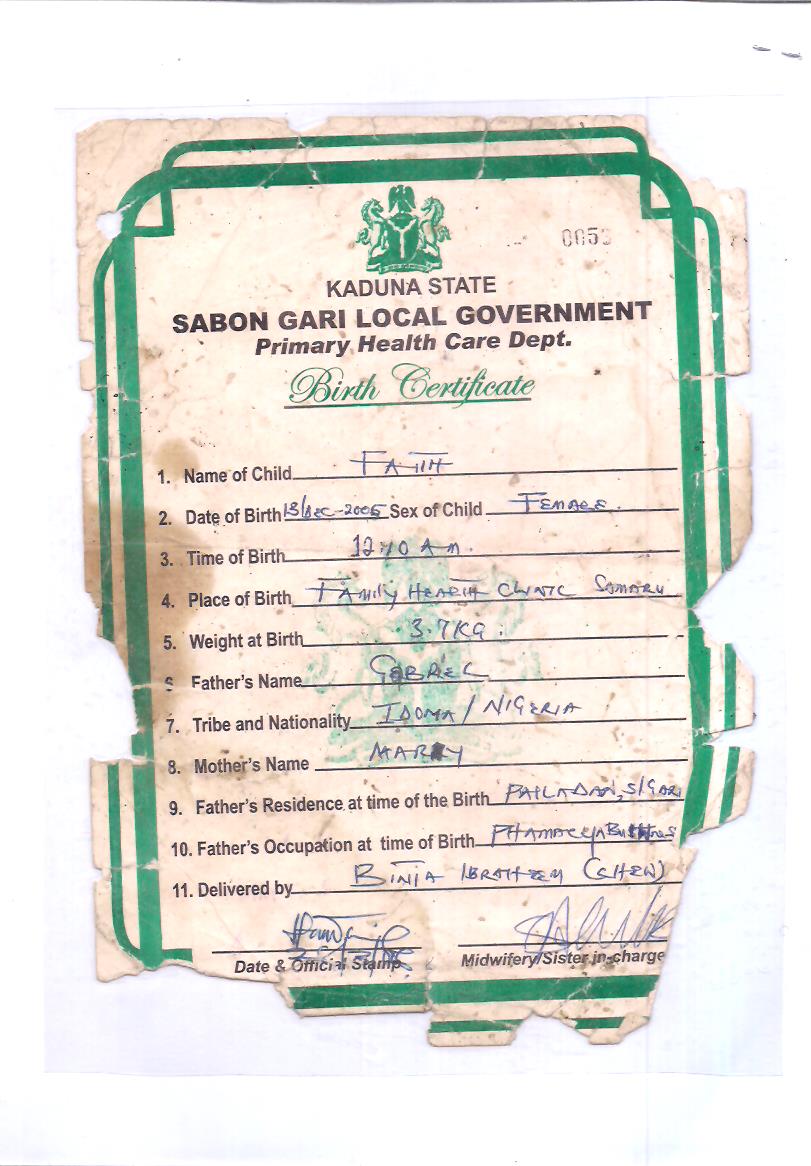 0053
KADUNA STATE
SABON GARI LOCAL GOVERNMENT
Primary Health Care Dept.
Birth Certificate
1. Name of Child FAITH
2. Date of Birth 13/DEC-2005 Sex of Child FEMALE.
3. Time of Birth 12:10 A.M.
4. Place of Birth FAMILY HEALTH CLINIC SAMARU
5. Weight at Birth 3.7KG.
6 Father's Name GABRIEL
7. Tribe and Nationality IDOMA/NIGERIA
8. Mother's Name MARY
9. Father's Residence at time of the Birth PALLADAN, S/GARI
10. Father's Occupation at time of Birth
11. Delivered by BINTA IBRAHEEM (CHEW)
Date & Official Stamp Midwifery/Sister in-charge